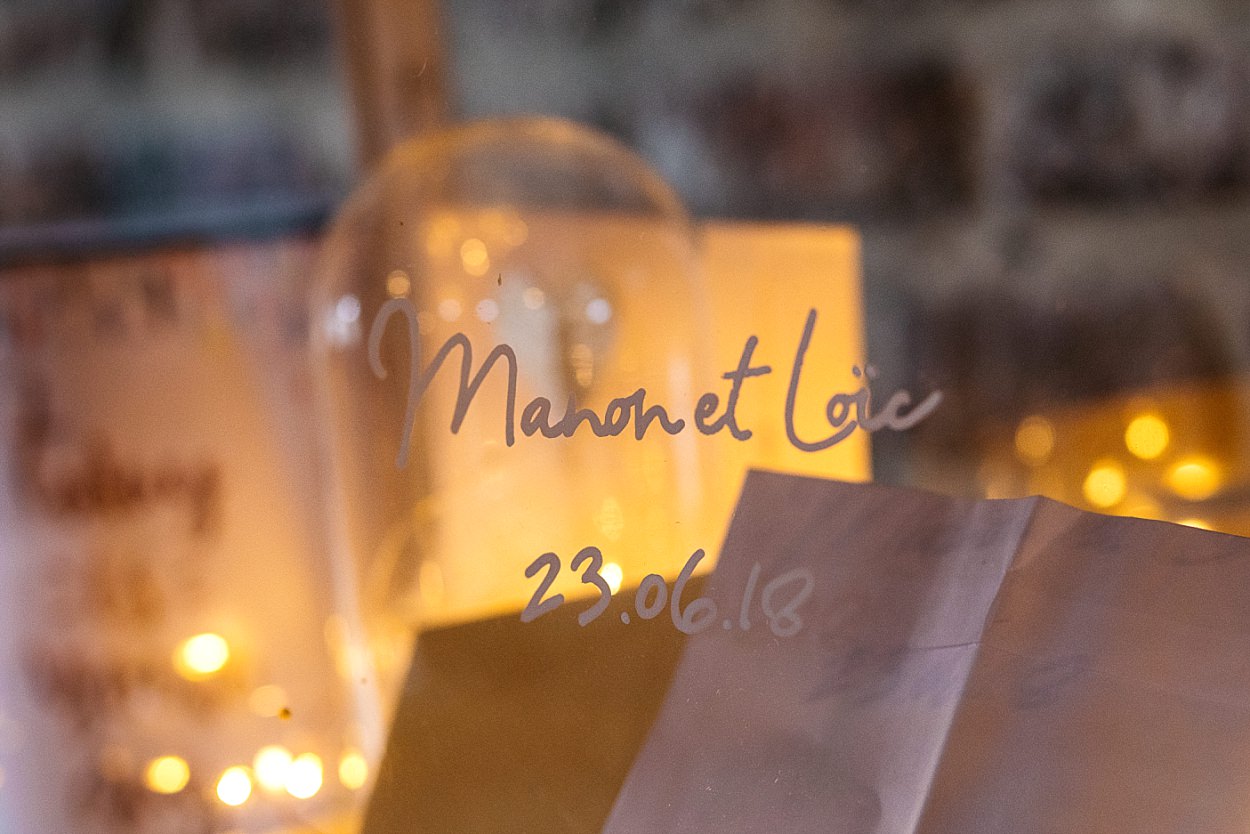 Manon et Loïc
23.06.18